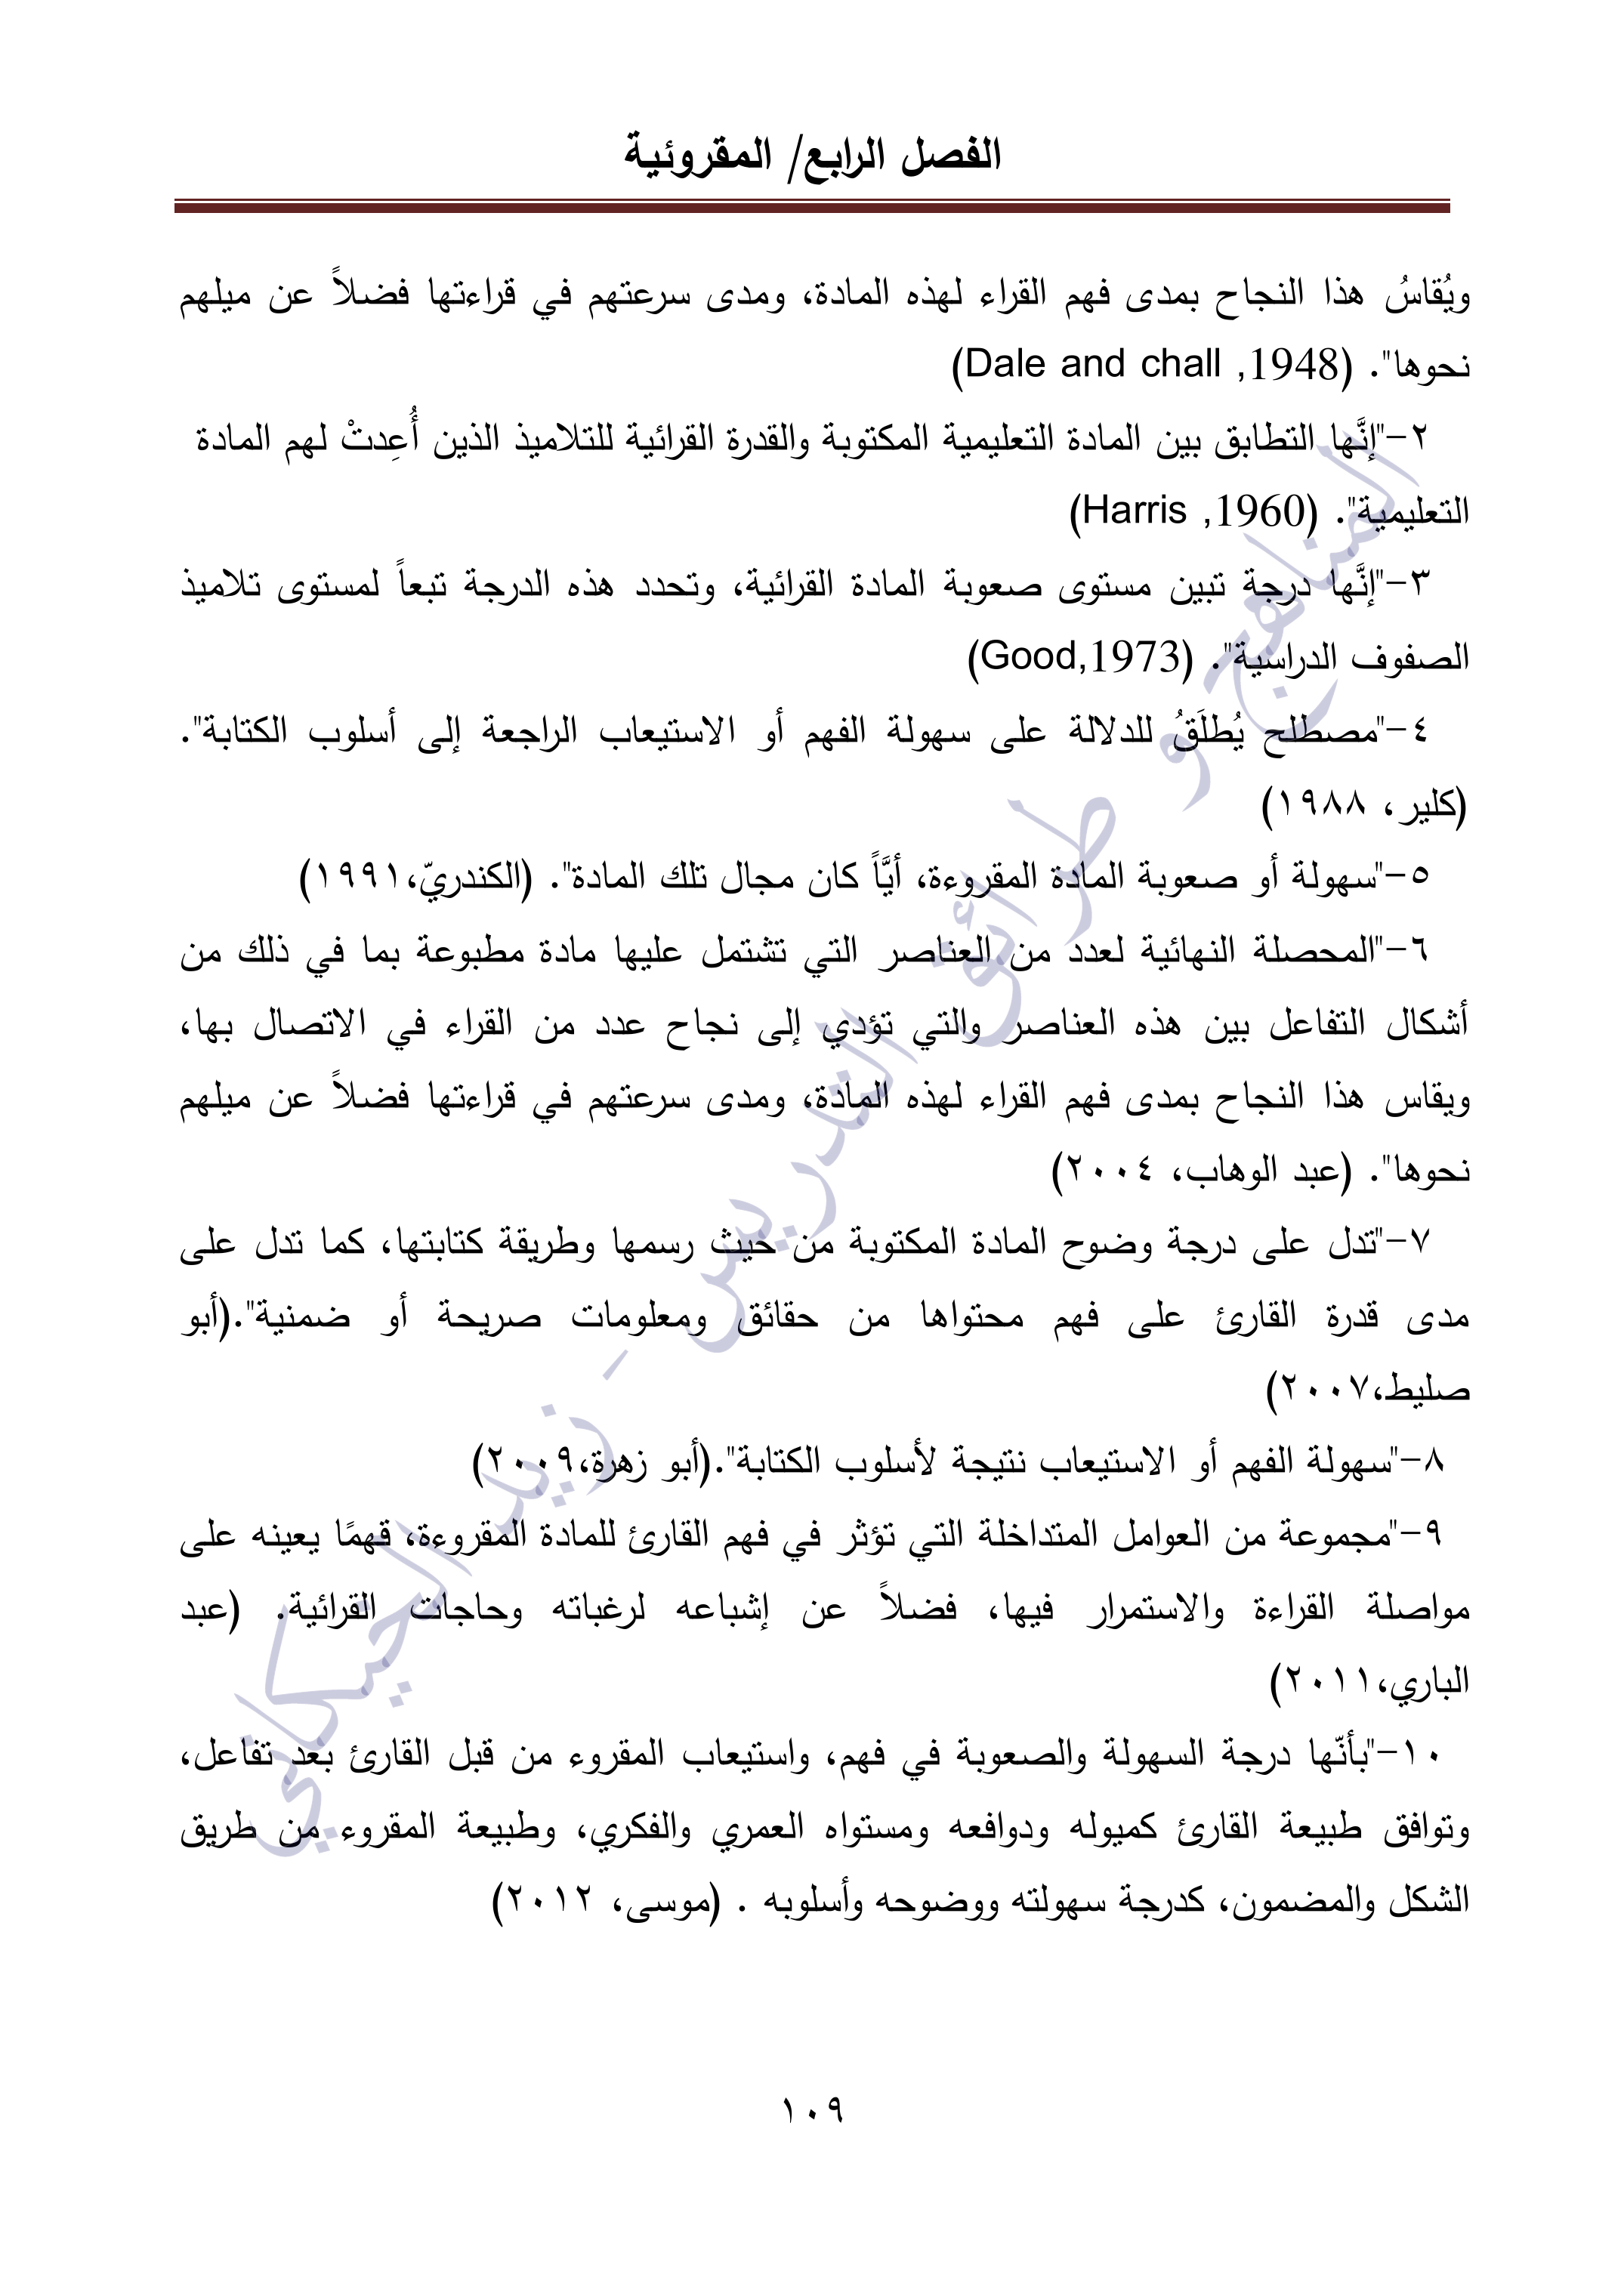 الفصل الرابع/ المقروئية
ويُقاسُ هذا النجاح بمدى فهم القراء لهذه المادة، ومدى سرعتهم في قراءتها فضلاً عن ميلهم
نحوها". (Dale and chall ,1948)
٢-"إنَّها التطابق بين المادة التعليمية المكتوبة والقدرة القرائية للتلاميذ الذين أُعِدتْ لهم المادة
التعليمية". (Harris ,1960)
٣-"إنَّها درجة تبين مستوى صعوبة المادة القرائية، وتحدد هذه الدرجة تبعاً لمستوى تلاميذ
الصفوف الدراسية". (Good,1973)
٤-"مصطلح يُطلَقُ للدلالة على سهولة الفهم أو الاستيعاب الراجعة إلى أسلوب الكتابة".
(كلير، ١٩٨٨)
٥-"سهولة أو صعوبة المادة المقروءة، أيَّاً كان مجال تلك المادة". (الكندريّ،١٩٩١)
٦-"المحصلة النهائية لعدد من العناصر التي تشتمل عليها مادة مطبوعة بما في ذلك من
أشكال التفاعل بين هذه العناصر والتي تؤدي إلى نجاح عدد من القراء في الاتصال بها،
ويقاس هذا النجاح بمدى فهم القراء لهذه المادة، ومدى سرعتهم في قراءتها فضلاً عن ميلهم
نحوها". (عبد الوهاب، ٢٠٠٤)
٧-"تدل على درجة وضوح المادة المكتوبة من حيث رسمها وطريقة كتابتها، كما تدل على
مدى قدرة القارئ على فهم محتواها من حقائق ومعلومات صريحة أو ضمنية".(أبو
صليط،٢٠٠٧)
٨-"سهولة الفهم أو الاستيعاب نتيجة لأسلوب الكتابة".(أبو زهرة،٢٠٠٩)
٩-"مجموعة من العوامل المتداخلة التي تؤثر في فهم القارئ للمادة المقروءة، قهمًا يعينه على
مواصلة القراءة والاستمرار فيها، فضلاً عن إشباعه لرغباته وحاجات القرائية. (عبد
الباري،٢٠١١)
١٠-"بأنّها درجة السهولة والصعوبة في فهم، واستيعاب المقروء من قبل القارئ بعد تفاعل،
وتوافق طبيعة القارئ كميوله ودوافعه ومستواه العمري والفكري، وطبيعة المقروء من طريق
الشكل والمضمون، كدرجة سهولته ووضوحه وأسلوبه . (موسى، ٢٠١٢)
١٠٩
المناهج و طرائق التدريس - زيد الحيكاني